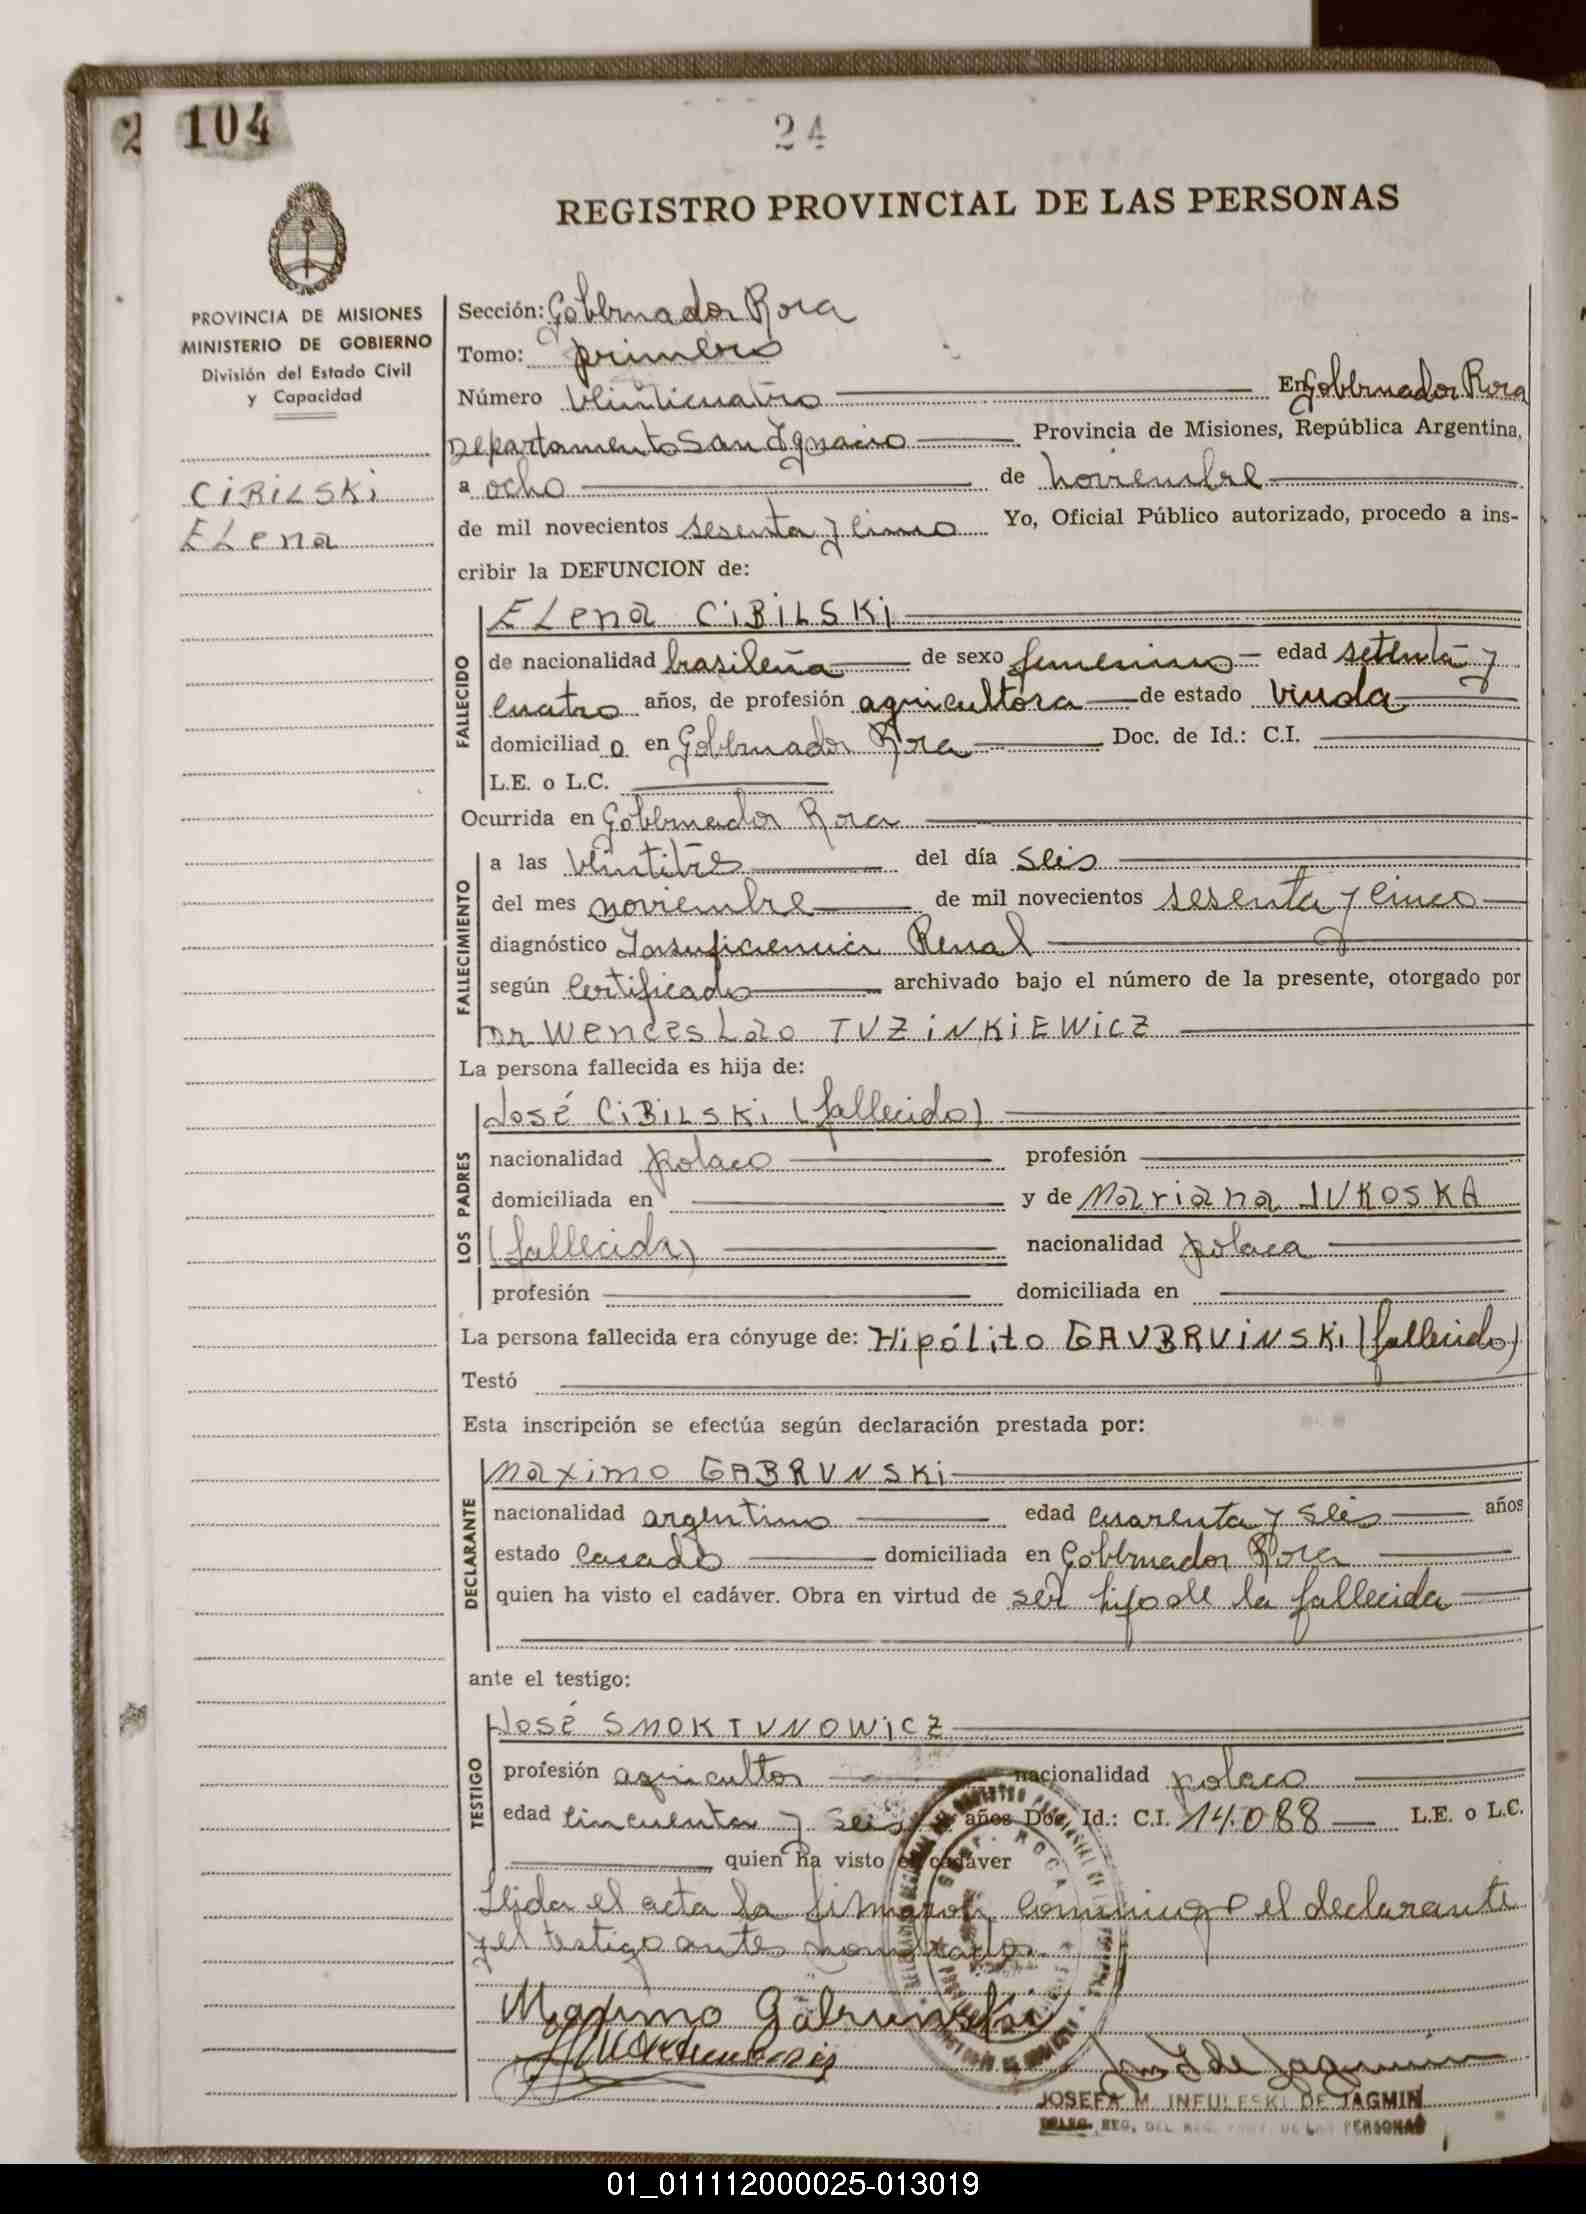 2 104
24
REGISTRO PROVINCIAL DE LAS PERSONAS
PROVINCIA DE MISIONES
MINISTERIO DE GOBIERNO
División del Estado Civil
y Capacidad
CIBILSKI
ELena
Sección: Gobernador Roca
Tomo: primero
Número veinticuatro En Gobernador Roca
Departamento San Ignacio Provincia de Misiones, República Argentina,
a ocho de noviembre
de mil novecientos sesenta y cinco Yo, Oficial Público autorizado, procedo a ins-
cribir la DEFUNCION de:
FALLECIDO
ELena CIBILSKI
de nacionalidad brasileña de sexo femenino edad setenta y
cuatro años, de profesión agricultora de estado viuda
domiciliad o en Gobernador Roca Doc. de Id.: C.I.
L.E. o L.C.
Ocurrida en Gobernador Roca
FALLECIMIENTO
a las veintitres del día seis
del mes noviembre de mil novecientos sesenta y cinco
diagnóstico Insuficiencia Renal
según certificado archivado bajo el número de la presente, otorgado por
Dr Wenceslao TUZINKIEWICZ
La persona fallecida es hija de:
LOS PADRES
José CIBILSKI (fallecido)
nacionalidad polaco profesión
domiciliada en y de Mariana JUKOSKA
(fallecida) nacionalidad polaca
profesión domiciliada en
La persona fallecida era cónyuge de: Hipólito GAUBRUINSKI (fallecido)
Testó
Esta inscripción se efectúa según declaración prestada por:
DECLARANTE
Maximo GABRUNSKI
nacionalidad argentino edad cuarenta y seis años
estado casado domiciliada en Gobernador Roca
quien ha visto el cadáver. Obra en virtud de ser hijo de la fallecida
ante el testigo:
TESTIGO
José SMOKTUNOWICZ
profesión agricultor nacionalidad polaco
edad cincuenta y seis años Doc. Id.: C.I. 14.088 L.E. o L.C.
quien ha visto el cadáver
Leida el acta la firmaron conmigo el declarante
y el testigo antes nombrados.
Maximo Gabrunski
JOSEFA M. INFULESKI DE JAGMIN
REG. DEL REG. PROV. DE LAS PERSONAS
01_011112000025-013019